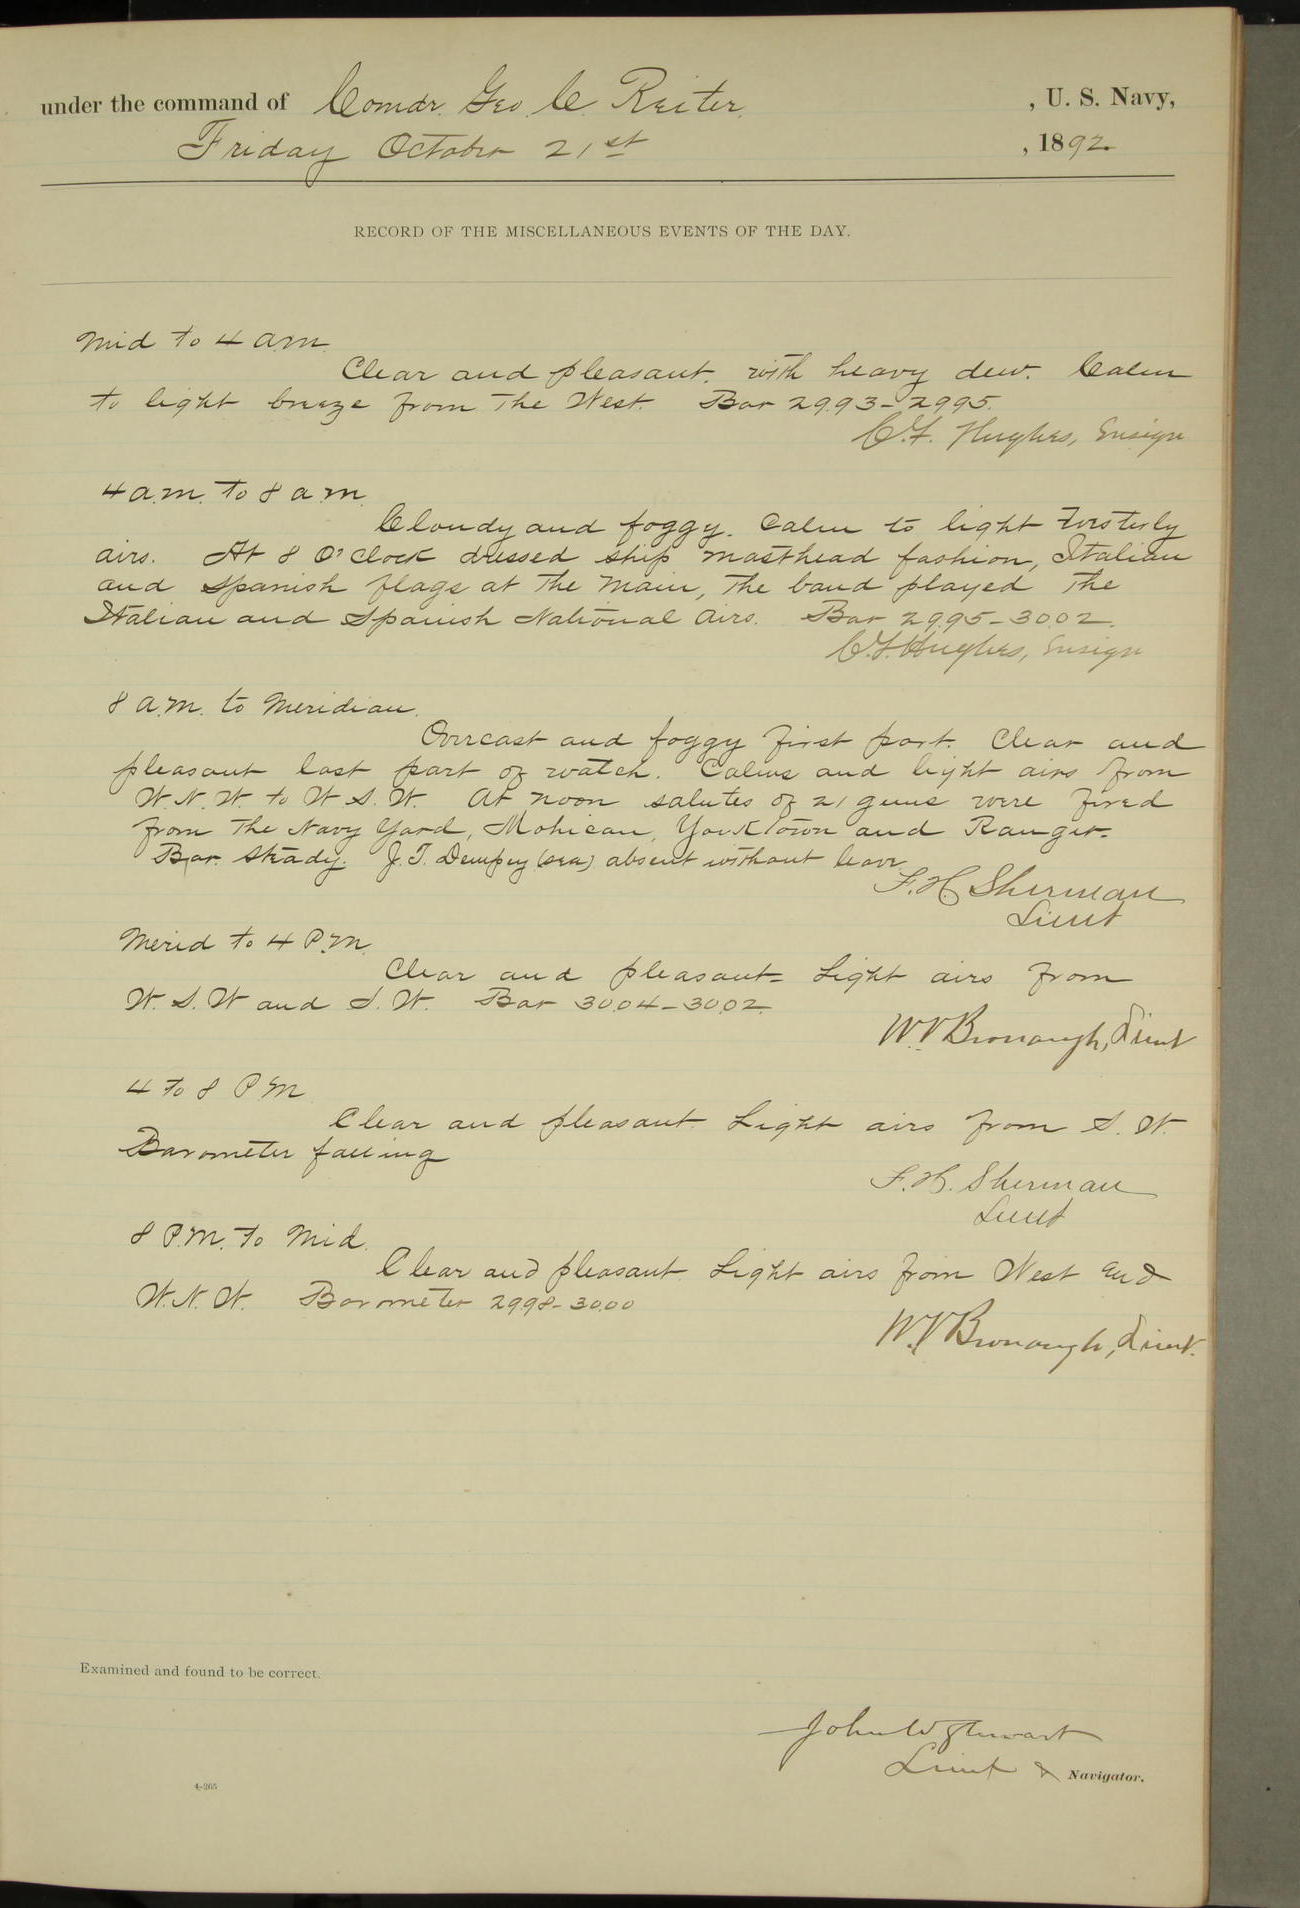 under the command of Comdr. Geo. C. Reiter, U. S. Navy,
Friday October 21st, 1892
RECORD OF THE MISCELLANEOUS EVENTS OF THE DAY.
Mid to 4 a.m.
Clear and pleasant. with heavy dew. Calm
to light breeze from the West. Bar 29.93-29.95.
C.F. Hughes, Ensign
4 a.m. to 8 a.m.
Cloudy and foggy. Calm to light Westerly
airs. At 8 O'Clock dressed ship masthead fashion, Italian
and Spanish flags at the Main, the band played the
Italian and Spanish National Airs. Bar 29.95-30.02.
C.F. Hughes, Ensign
8 a.m. to Meridian.
Overcast and foggy first part. Clear and
pleasant last part of watch. Calms and light airs from
W.N.W. to W.S.W. At noon salutes of 21 guns were fired
from the Navy Yard, Mohican, Yorktown and Ranger.
Bar. steady. J.T. Dempsey (sea) absent without leave
F.H. Sherman
Lieut
Merid to 4 P.M.
Clear and pleasant. Light airs from
W.S.W and S.W. Bar 30.04-30.02.
W.V. Bronaugh, Lieut
4 to 8 P.M
Clear and pleasant. Light airs from S.W.
Barometer falling
F.H. Sherman
Lieut
8 P.M. to Mid.
Clear and pleasant Light airs from West and
W.N.W. Barometer 29.98-30.00
W.V. Bronaugh, Lieut.
Examined and found to be correct.
John W Stewart
Lieut & Navigator.
4-265